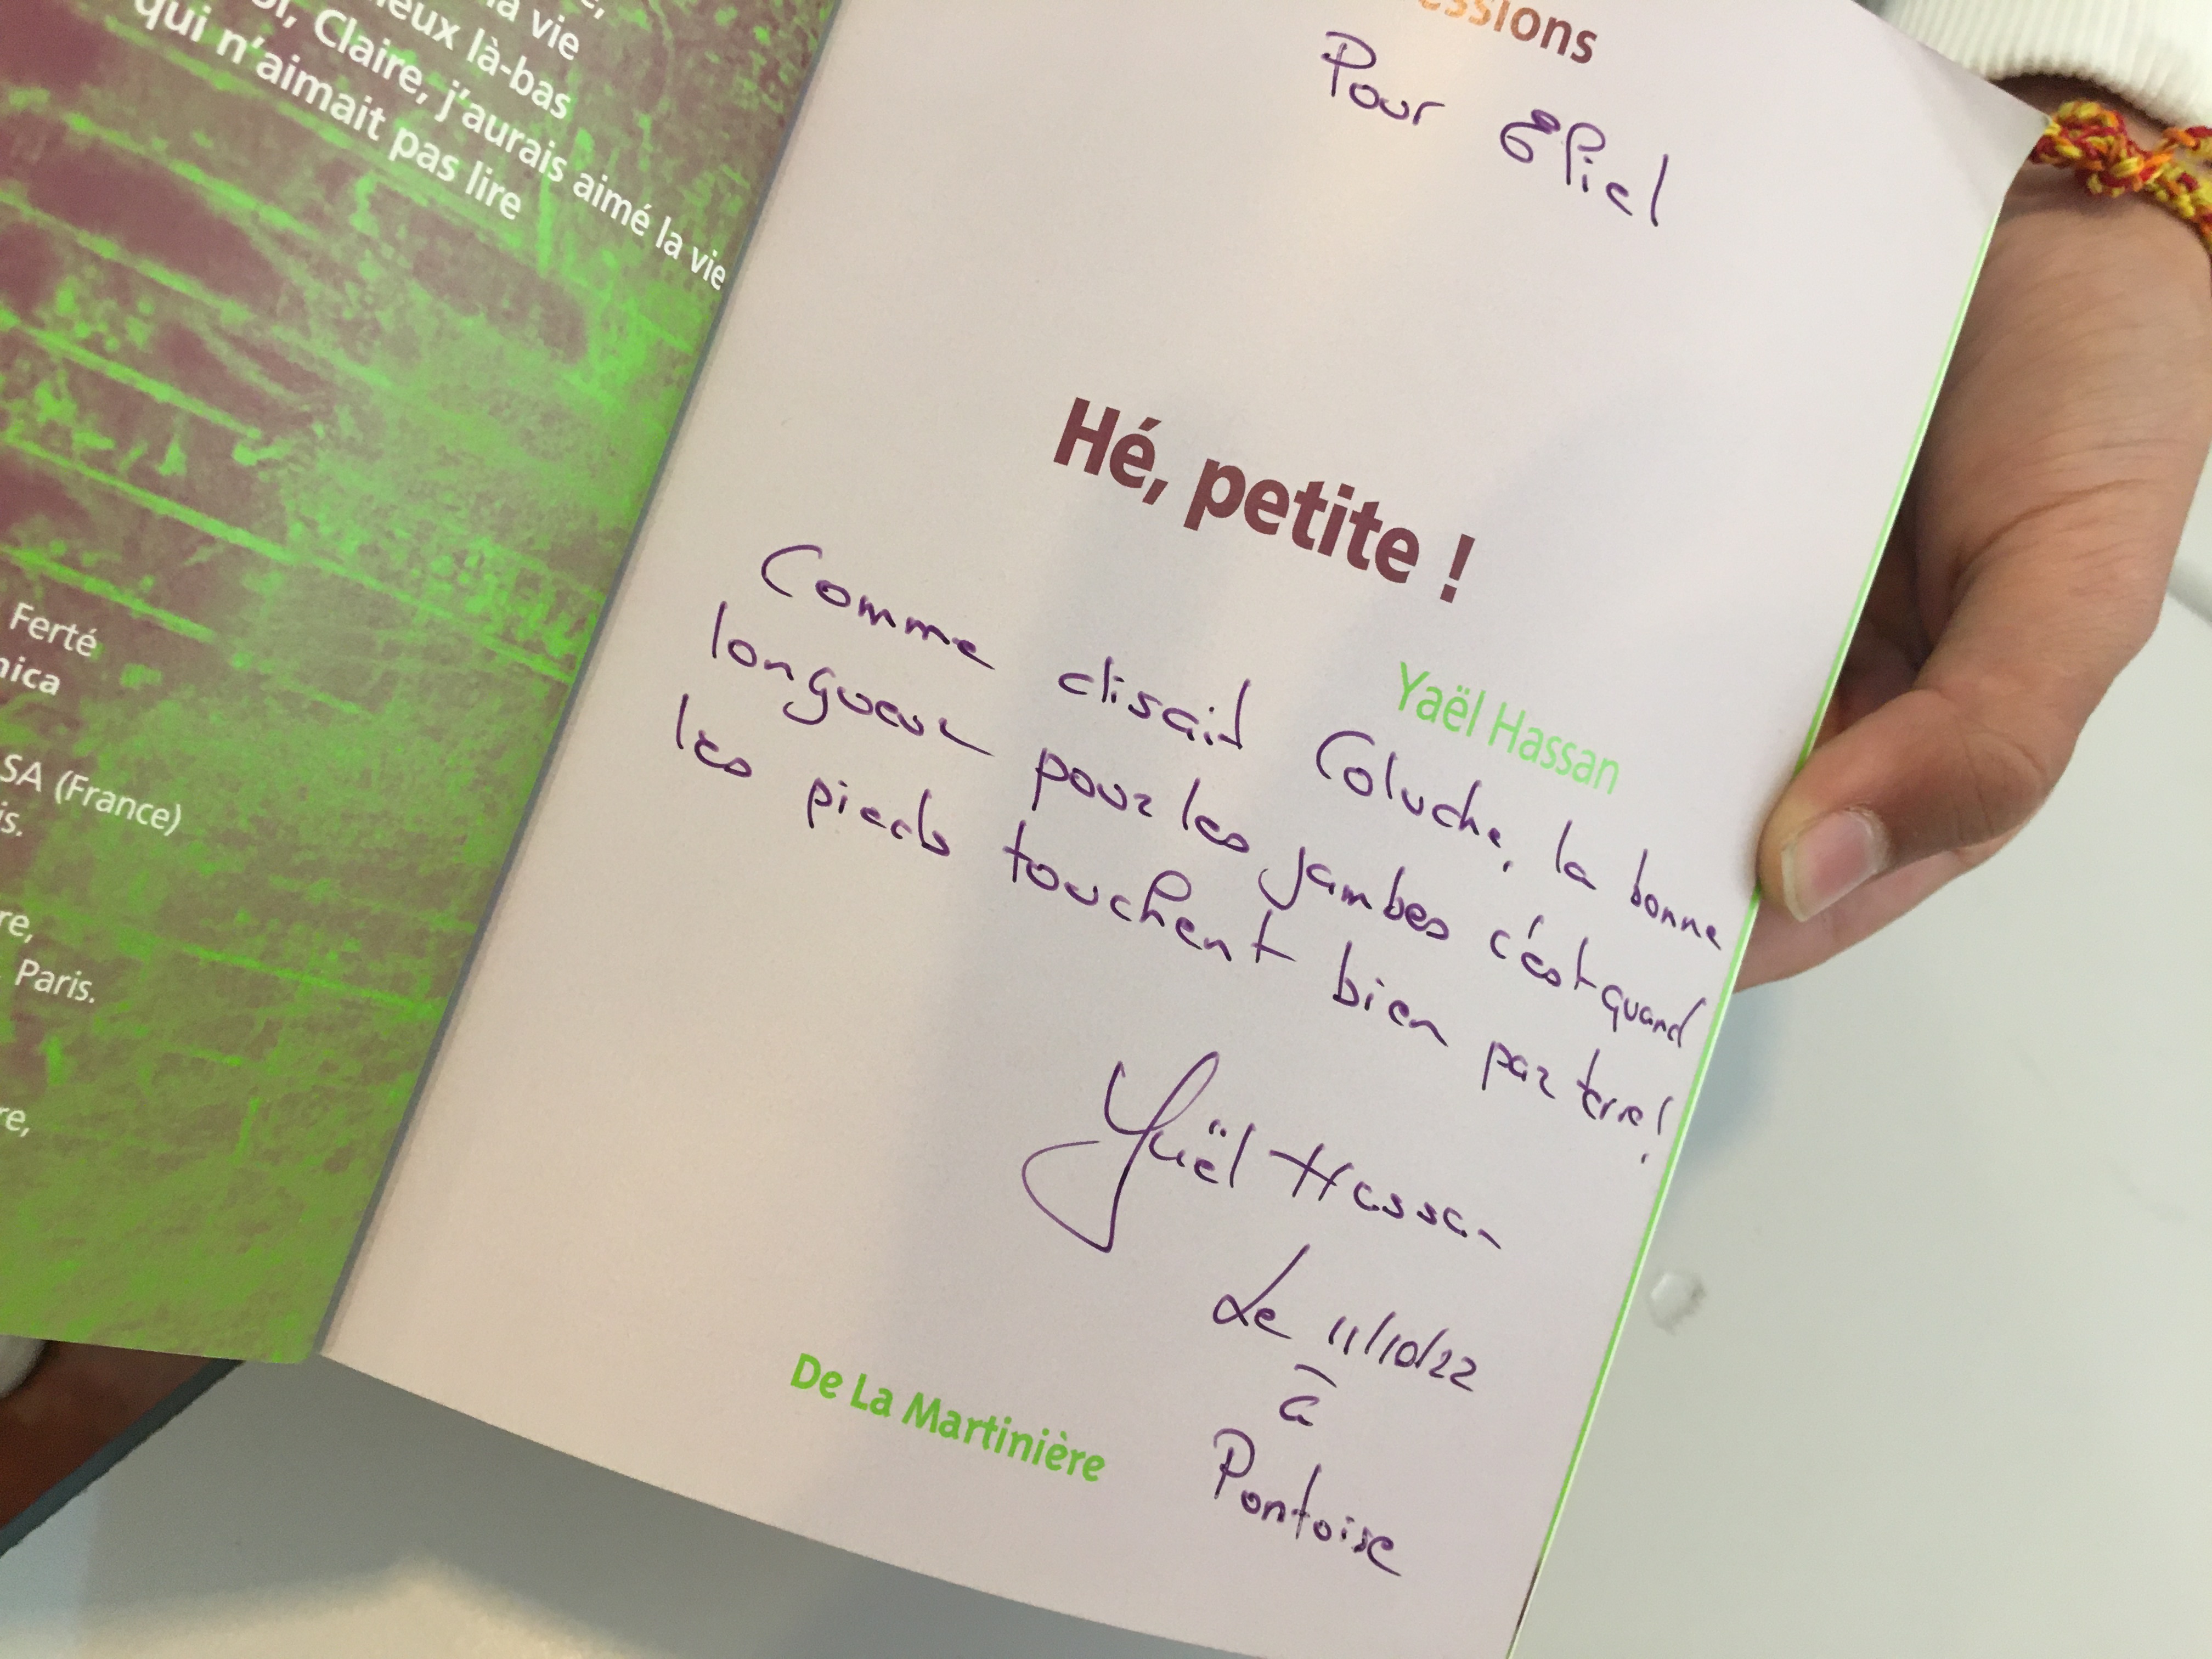 la vie
là-bas
Claire, j'aurais aimé la vie
qui n'aimait pas lire
Ferté
SA (France)
Paris.
Pour
Hé, petite !
Yaël Hassan
Comme disait Coluche, la bonne
longueur pour les jambes c'est quand
les pieds touchent bien par terre !
Yaël Hassan
Le 11/10/22
à
Pontoise
De La Martinière